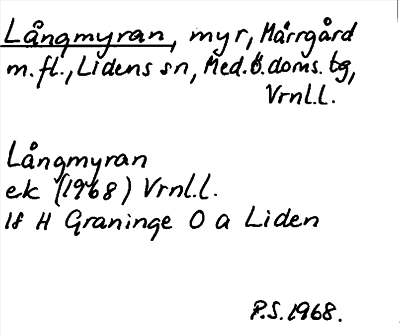 Långmyran, myr, Mårrgård
m.fl., Lidens sn, Med.Ö.doms.bg,
Vrnl.l.
Långmyran
ek (1968) Vrnl.l.
18 H Graninge O a Liden
P.S.1968.